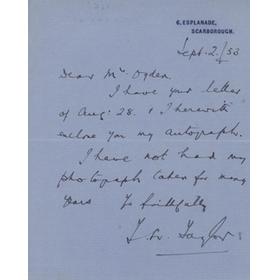 6, ESPLANADE,
SCARBOROUGH.
Sept. 2. /53
Dear Mr. Ogden
I have your letter
of Aug. 28. & I herewith
enclose you my autograph.
I have not had my
photograph taken for many
years Yrs faithfully
Taylor